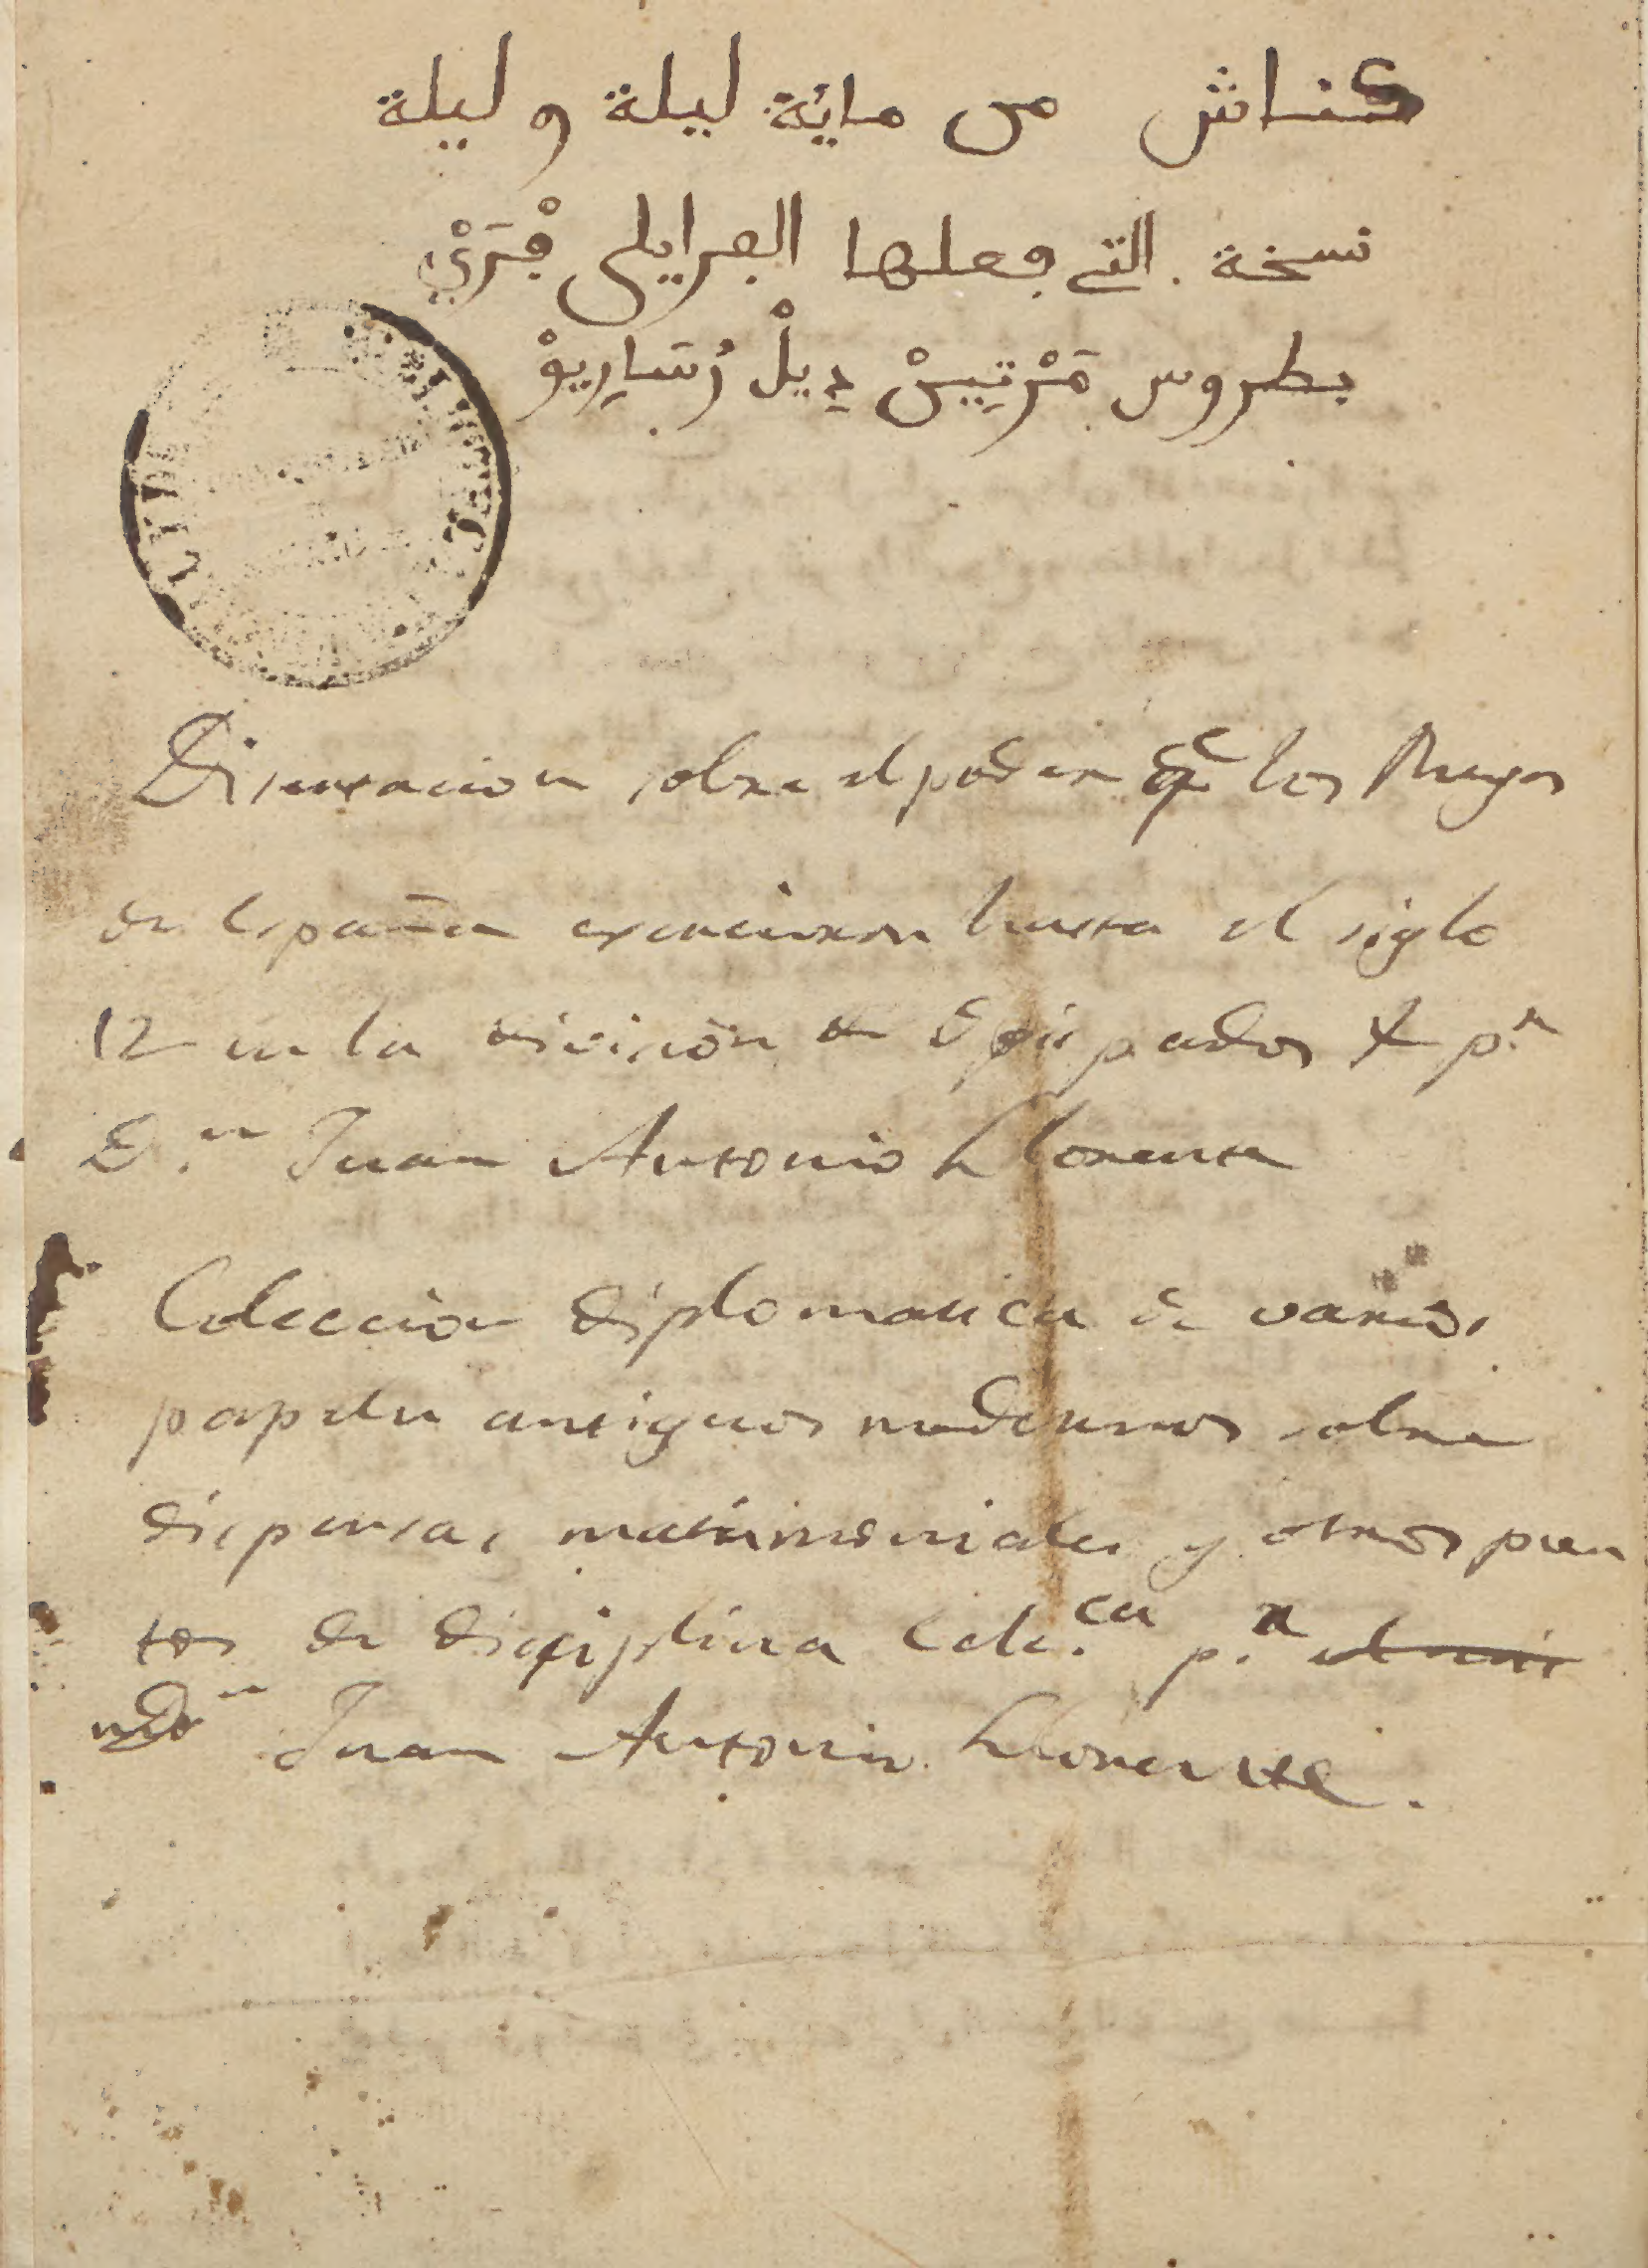 كناش من مائة ليلة و ليلة
نسخة التي جعلها الفرايلي فْرَيْ
بطروس مَرْتِيسْ دِيلْ رُسَارِيوْ
Disertacion sobre el poder qe los Reyes
de España exercieron hasta el siglo
12 en la division de Obispados & p.r
D.n Juan Antonio Llorente
Coleccion diplomatica de varios
papeles antiguos modernos sobre
dispensas matrimoniales y otros pun
tos de disciplina Ecle.ca p.r
Dn Juan Antonio Llorente.